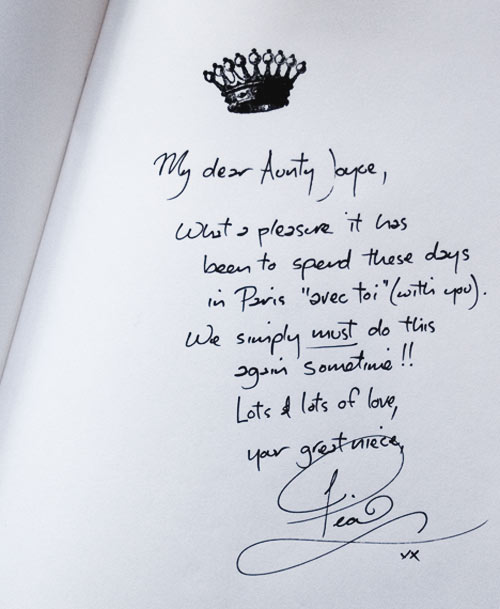 My dear Aunty Joyce,
What a pleasure it has
been to spend these days
in Paris "avec toi" (with you).
We simply must do this
again sometime!!
Lots & lots of love,
your great niece,
Pea
xx